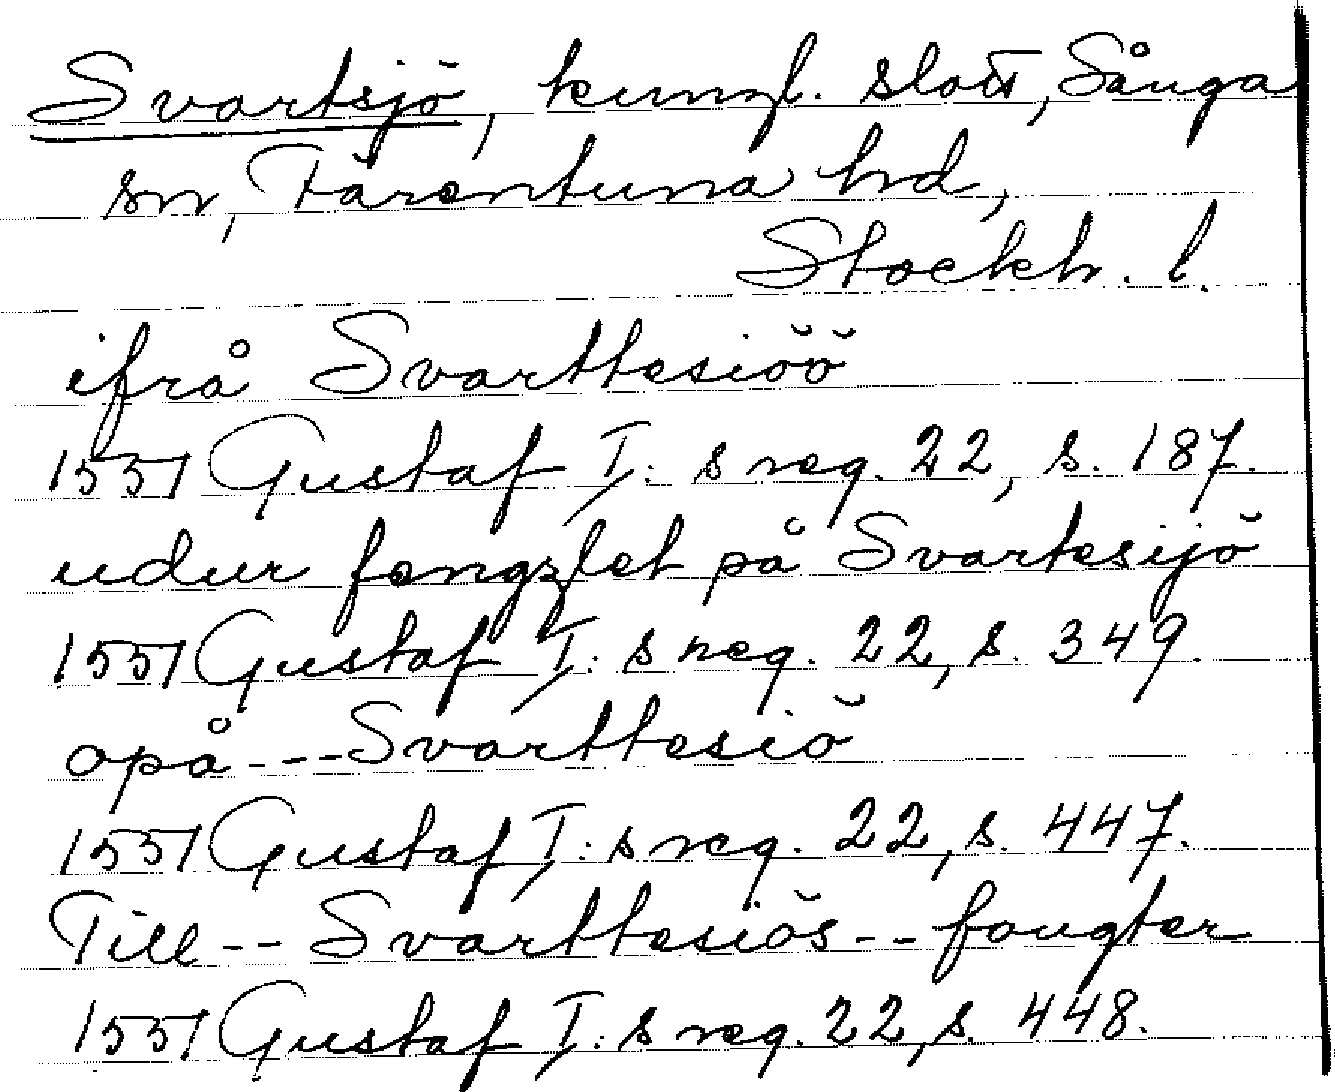 Svartsjö, kungl. slott, Sånga
sn, Färentuna hd,
Stockh. l.
ifrå Svarttesiöö
1551 Gustaf I:s reg. 22, s. 187.
udur fengzlet på Svartesijö
1551 Gustaf I:s reg. 22, s. 349.
opå---Svarttesiö
1551 Gustaf I:s reg. 22, s. 447.
Till-- Svarttesiös-- fougter
1551 Gustaf I:s reg. 22, s. 448.